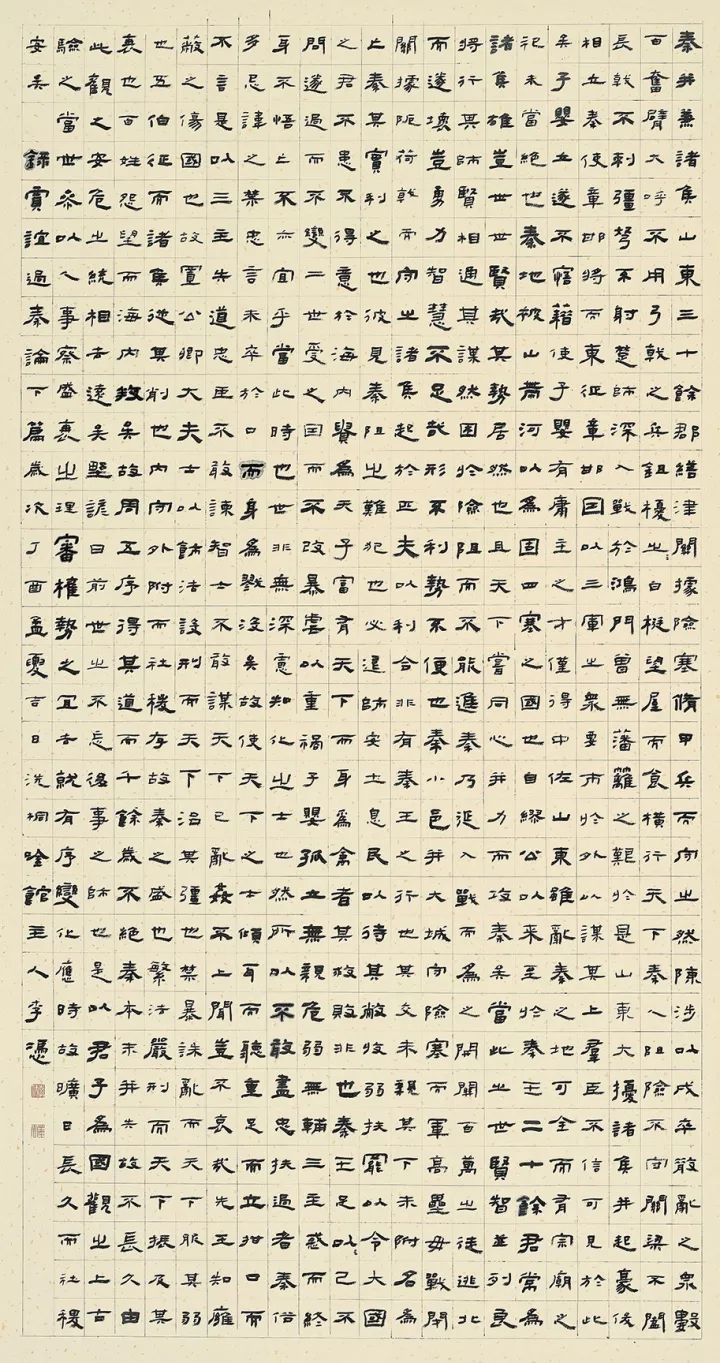 秦并兼諸矦山東三十餘郡繕津關據險塞脩甲兵而守之然陳涉以戍卒散亂之衆數
百奮臂大呼不用弓戟之兵鉏櫌之白梃望屋而食橫行天下秦人阻險不守關梁不闔
長戟不刺彊弩不射楚師深入戰於鴻門曾無藩籬之艱於是山東大擾諸矦并起豪俊
相立秦使章邯將而東征章邯因以三軍之衆要市於外以謀其上羣臣不信可見於此
矣子嬰立遂不寤藉使子嬰有庸主之才僅得中佐山東雖亂秦之地可全而有宗廟之
祀未當絕也秦地被山帶河以爲固四塞之國也自繆公以來至於秦王二十餘君常爲
諸矦雄豈世世賢哉其勢居然也且天下嘗同心并力而攻秦矣當此之世賢智並列良
將行其師賢相通其謀然困於險阻而不能進秦乃延入戰而爲之開關百萬之徒逃北
而遂壞豈勇力智慧不足哉形不利勢不便也秦小邑并大城守險塞而軍高壘毋戰閉
關據阨荷戟而守之諸矦起於匹夫以利合非有秦王之行也其交未親其下未附名爲
上秦其實利之也彼見秦阻之難犯也必退師安土息民以待其敝收弱扶罷以令大國
之君不患不得意於海內賢爲天子富有天下而身爲禽者其救敗非也秦王足以己不
問遂過而不變二世受之因而不改暴虐以重禍子嬰孤立無親危弱無輔三主惑而終
身不悟上不亦宜乎當此時也世非無深意知化之士也然所以不敢盡忠扶過者秦俗
多忌諱之禁忠言未卒於口而身爲戮沒矣故使天下之士傾耳而聽重足而立拑口而
不言是以三主失道忠臣不敢諫智士不敢謀天下已亂姦不上聞豈不哀哉先王知雍
蔽之傷國也故置公卿大夫士以飾法設刑而天下治其彊也禁暴誅亂而天下服其弱
也五伯征而諸矦從其削也內守外附而社稷存故秦之盛也繁法嚴刑而天下振及其
衰也百姓怨望而海內叛矣故周五序得其道而千餘歲不絕秦本末并失故不長久由
此觀之安危之統相去遠矣野諺曰前世之不忘後事之師也是以君子爲國觀之上古
驗之當世參以人事察盛衰之理審權勢之宜去就有序變化應時故曠日長久而社稷
安矣 錄賈誼過秦論下篇歲次丁酉孟夏吉日洗桐吟館主人李憑